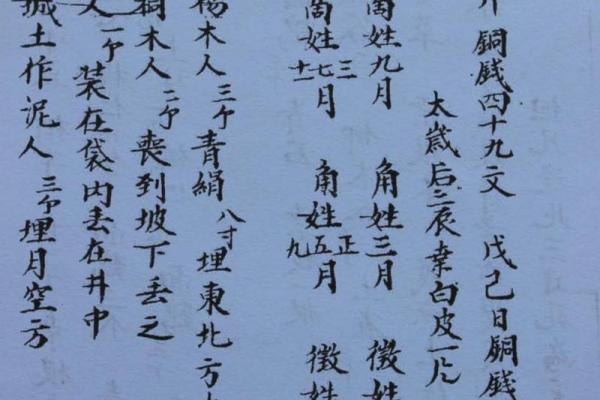 銅錢四十九文 戊己日銅錢
太歲后三辰幸白皮一片
商姓九月 角姓三月 徵姓
商姓三七十一月 角姓正五九月 徵姓
楊木人三个青絹八寸埋東北方
桐木人二个喪到坡下丢之
人一个装在袋内丢在井中
城土作泥人三个埋月空方